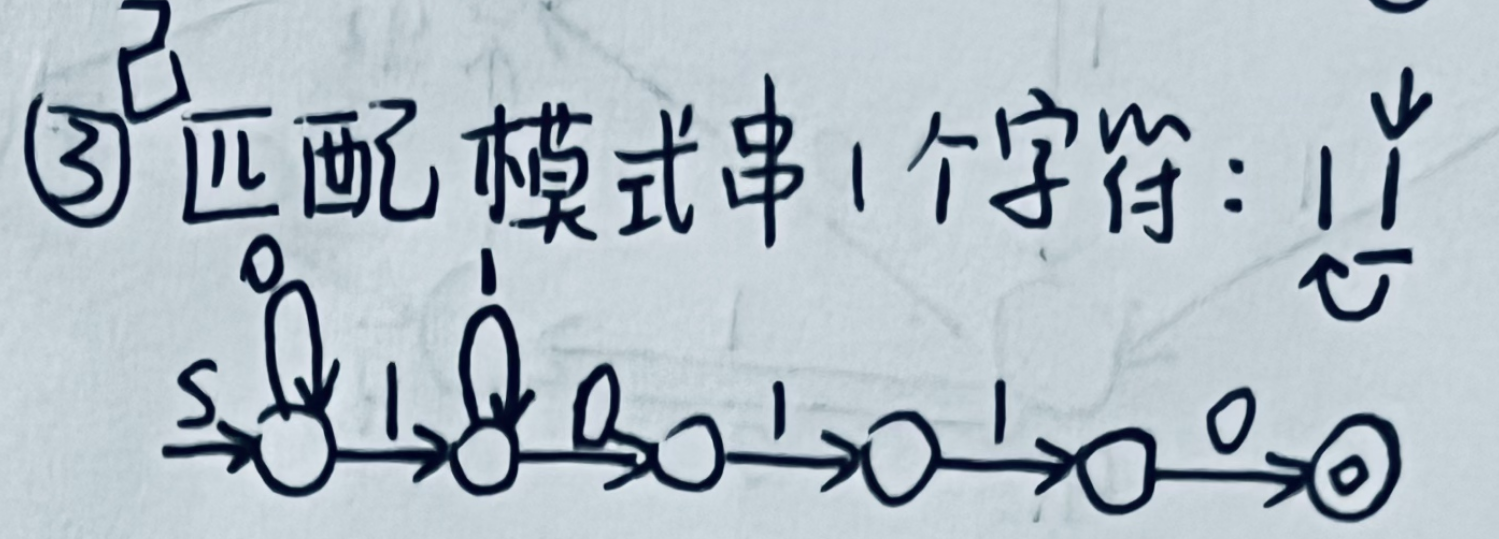 ③已匹配模式串1个字符:11
0 1
S 1 0 1 1 0